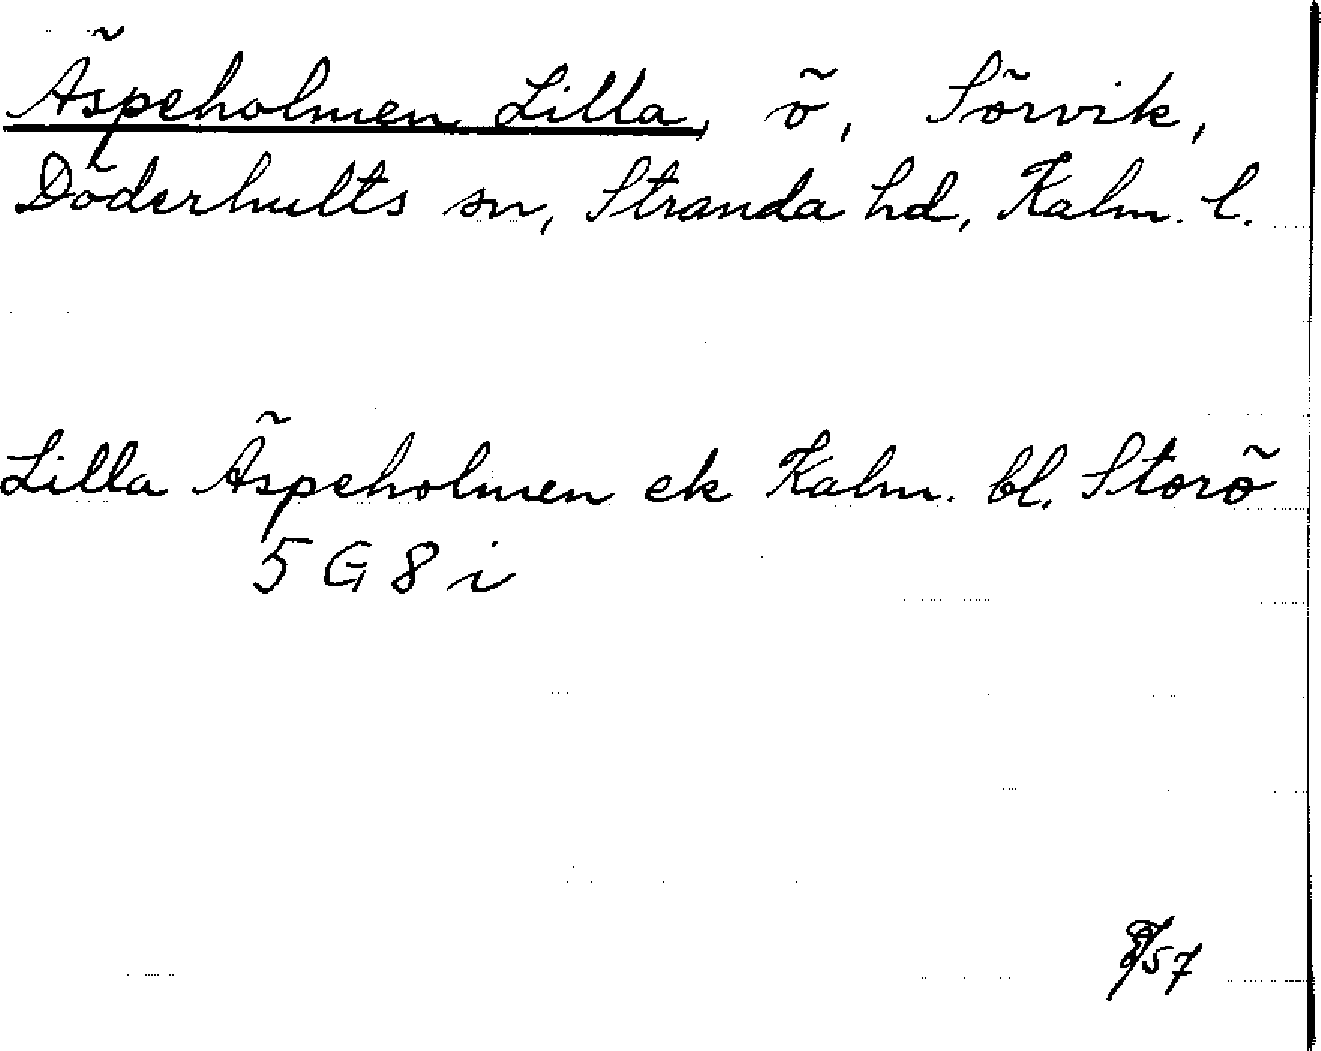 Äspeholmen, Lilla, ö, Sörvik,
Döderhults sn, Stranda hd, Kalm. l.
Lilla Äspeholmen ek Kalm. bl. Storö
5 G 8 i